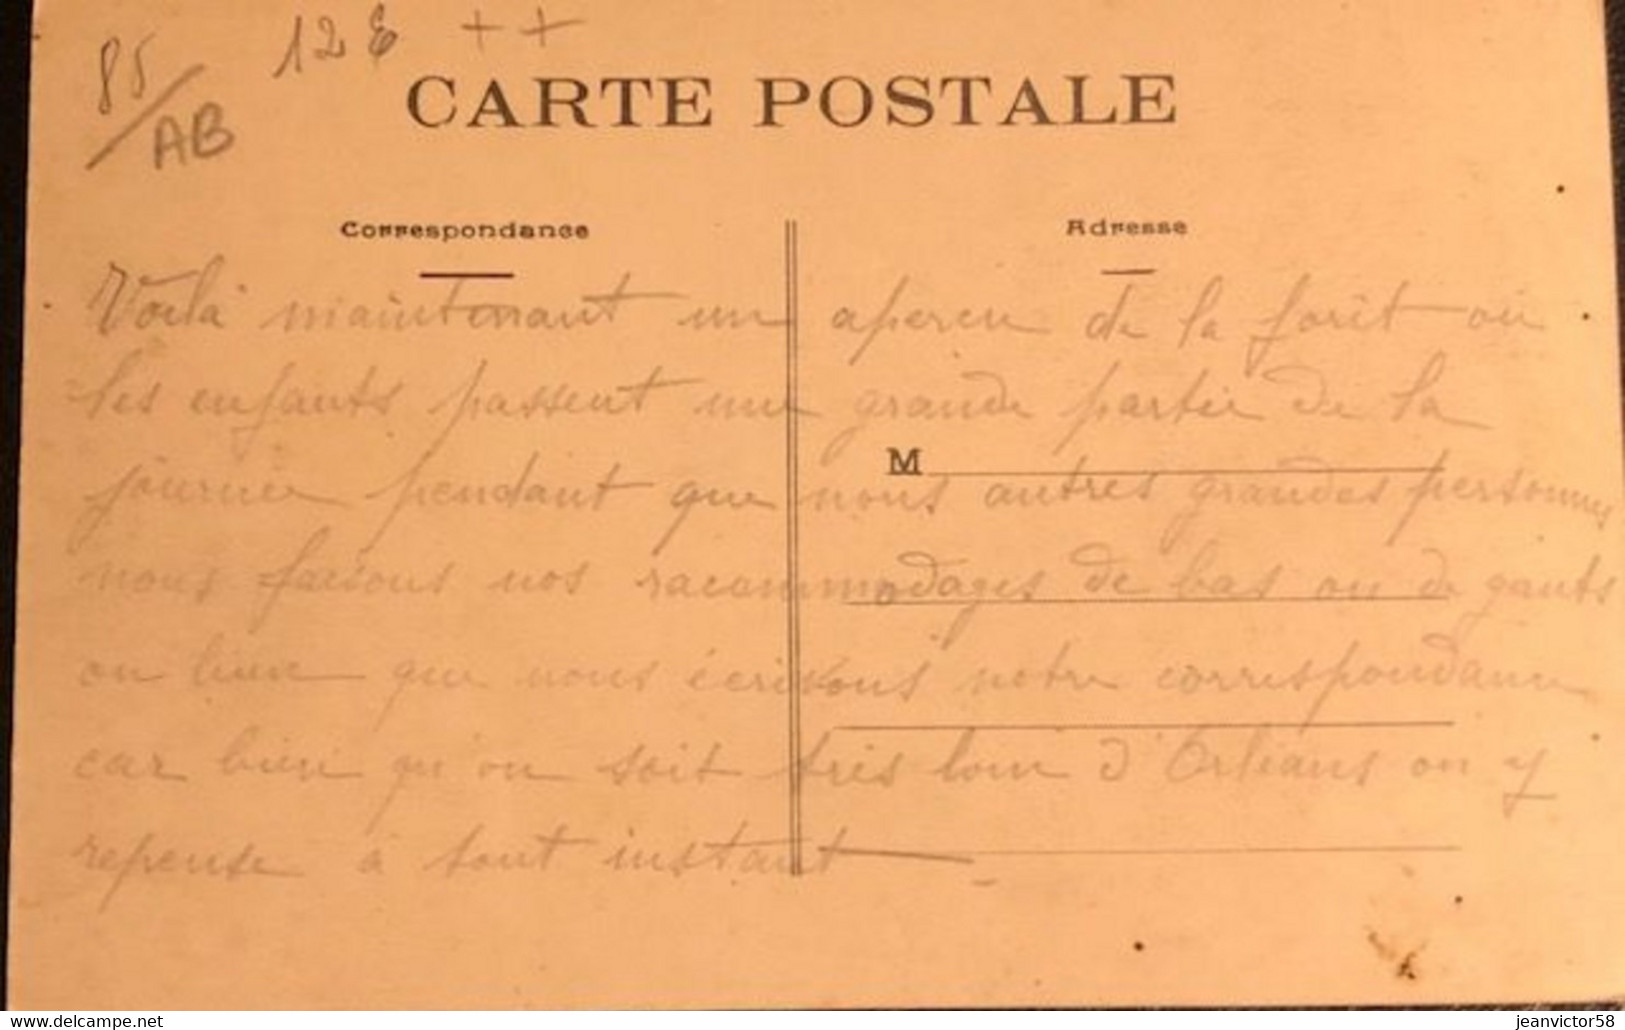 85/AB 12 € ++
CARTE POSTALE
Correspondance
Adresse
Voilà maintenant un aperçu de la forêt où
les enfants passent une grande partie de la
M
journée pendant que nous autres grandes personnes
nous faisons nos racommodages de bas ou de gants
ou bien que nous écrivons notre correspondance
car bien qu'on soit très loin d'Orléans on y
repense à tout instant
delcampe.net
jeanvictor58